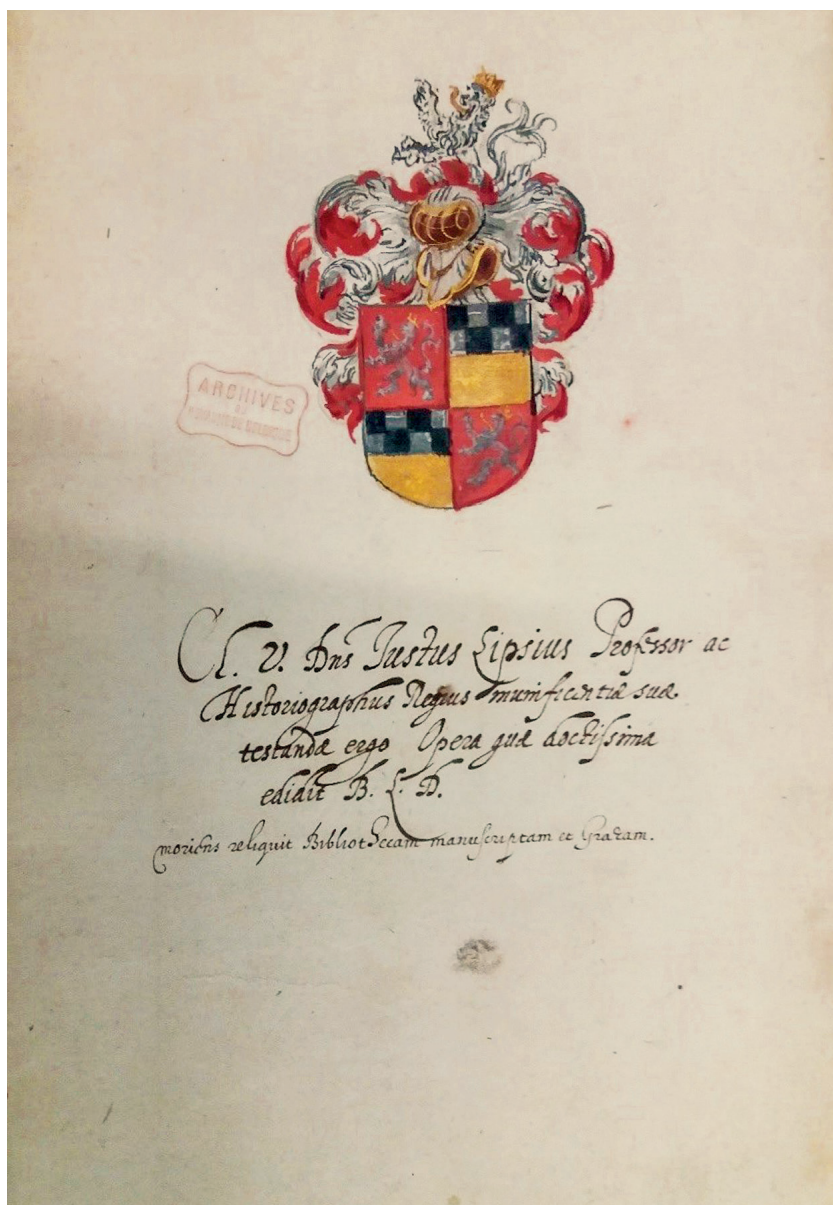 ARCHIVES
DU
ROYAUME DE BELGIQUE
Cl. V. Dns Justus Lipsius Professor ac
Historiographus Regius munificentiæ suæ
testandæ ergo Opera quæ doctissima
edidit B. L. D.
moriens reliquit Bibliothecam manuscriptam et Græcam.